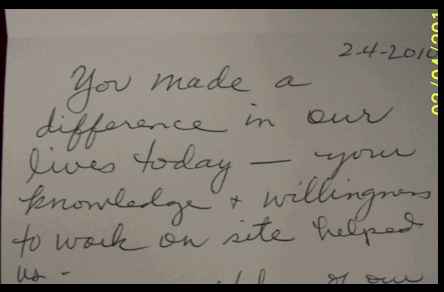 2-4-2010
You made a
difference in our
lives today — your
knowledge + willingness
to work on site helped
us -
of our